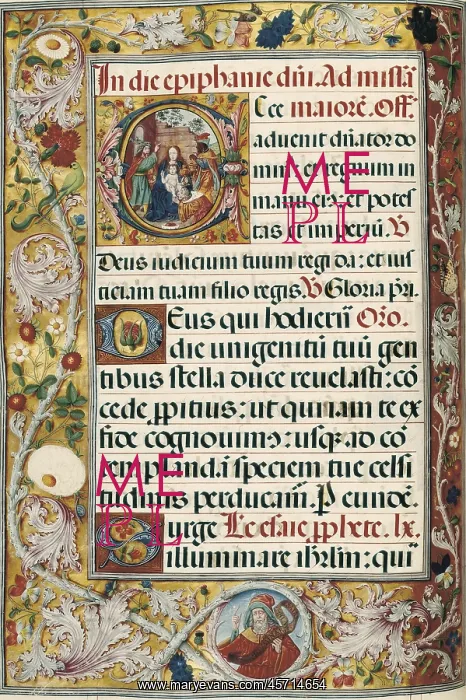 In die epiphanie dñi. Ad missã
Cce maiorē. Off.
aduenit dñator do
minꝰ et regnum in
manu eiꝰ et potes
tas et imperiū. V
Deus iudicium tuum regi da: et ius
ticiam tuam filio regis. V Gloria pr̃i.
Eus qui hodiernā Oro.
die unigenitū tuū gen
tibus stella duce reuelasti: cō
cede ꝓpitius: ut qui iam te ex
fide cognouimꝰ: usqꝫ ad cō
templandā speciem tue celsi
tudinis perducam̃. P eundē.
urge Lc̃ esaie ꝓphete. lx.
illuminare ihrlm: qui
ME
PL
ME
PL
www.maryevans.com/45714654